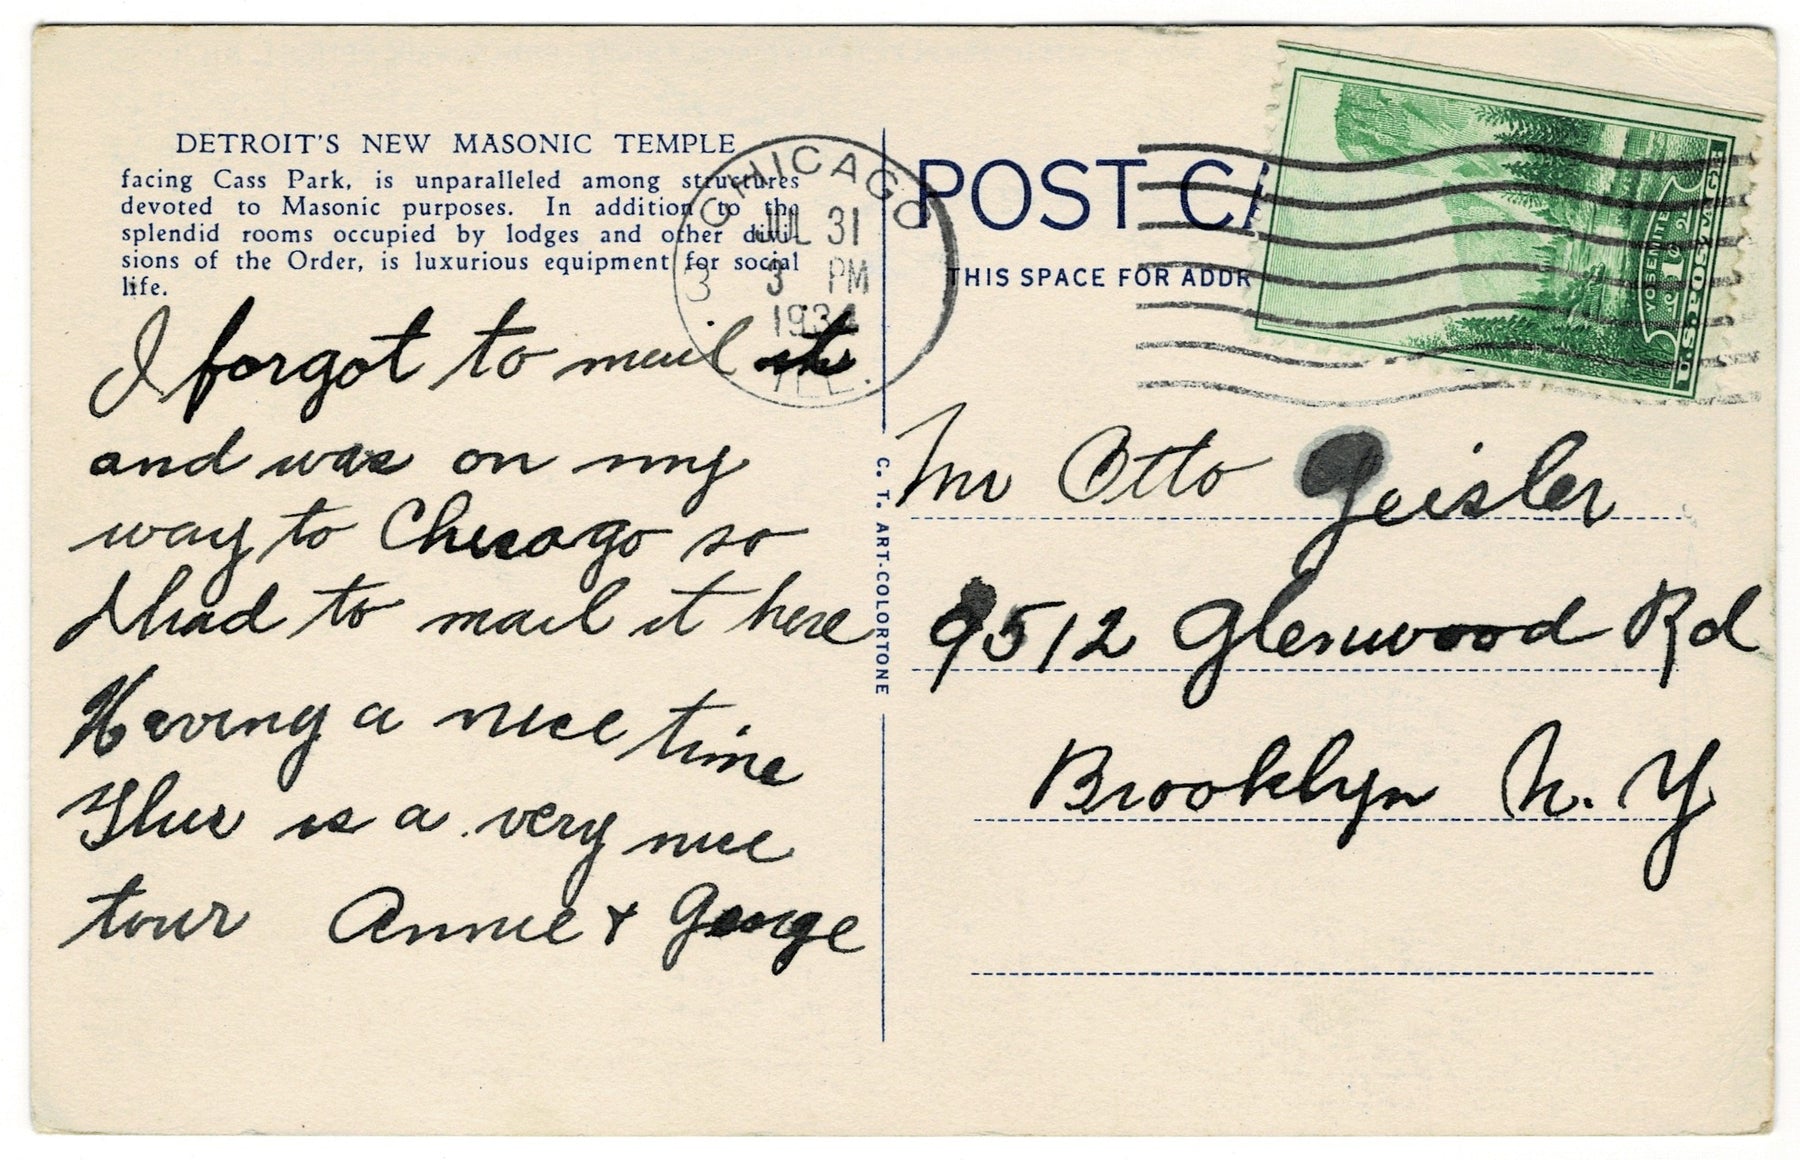 DETROIT'S NEW MASONIC TEMPLE
facing Cass Park, is unparalleled among structures
devoted to Masonic purposes. In addition to the
splendid rooms occupied by lodges and other divi-
sions of the Order, is luxurious equipment for social
life.
I forgot to mail it
and was on my
way to Chicago so
I had to mail it here
Having a nice time
This is a very nice
tour Annie + George
C. T. ART-COLORTONE
CHICAGO
JUL 31
3 3 PM
1934
ILL.
POST CA
THIS SPACE FOR ADDR
YOSEMITE
1¢
U.S. POSTAGE
Mr Otto Geisler
9512 Glenwood Rd
Brooklyn N. Y